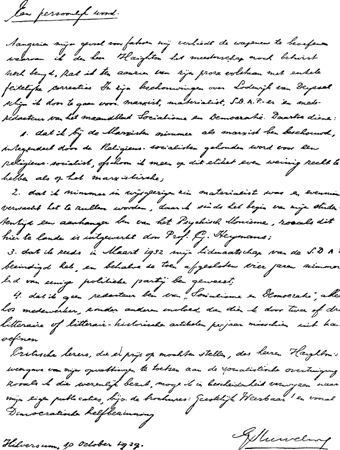 Een persoonlijk woord.
Aangezien mijn gevoel van fatsoen mij verbiedt de wapenen te
waarvan ik den heer Haighton het meesterschap noch betwist
noch benijd, zal ik ten aanzien van zijn proza volstaan met enkele
feitelijke correcties. In zijn beschouwingen over Lodewijk van Deyssel
ik door te gaan voor marxist, materialist, S.D.A.P.-er en mede-
redacteur van het maandblad Socialisme en Democratie. Daartoe diene:
1. dat ik bij de Marxisten nimmer als marxist ben beschouwd,
integendeel door de Religieus-socialisten gehouden werd voor een
religieus-socialist, ofschoon ik meer op dit etiket even weinig recht te
hebben als op het marxistische;
2. dat ik nimmer in wijsgerige zin materialist was en evenmin
verwacht het te zullen worden, daar ik sinds het begin van mijn studen-
tentijd een aanhanger ben van het Psychisch Monisme, zooals dit
hier te lande is uitgewerkt door Prof. G. Heymans;
3. dat ik reeds in Maart 1932 mijn lidmaatschap van de S.D.A.P.
beëindigd heb, en behalve de toen afgesloten vier jaren nimmer
lid van eenige politieke partij ben geweest;
4. dat ik geen redacteur ben van "Socialisme en Democratie",
los medewerker, zonder anderen invloed dan die ik door twee of drie
litteraire of litterair-historische artikelen per jaar misschien uit kan
oefenen
Critische lezers, die er prijs op mochten stellen, des heeren Haighton's
weergaven van mijn opvattingen te toetsen aan de journalistieke overtuiging
zooals ik die werkelijk bezit, moge ik in bescheidenheid verwijzen naar
mijn eigen publicaties, de brochures: Geestelijk Weerbaar! en vooral
Democratische
Hilversum, 10 October 1939.